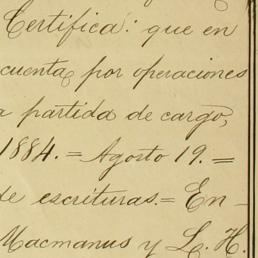 Certifica: que en
cuenta por operaciones
a partida de cargo,
1884. = Agosto 19. =
de escrituras. = En-
Macmanus y L. H.